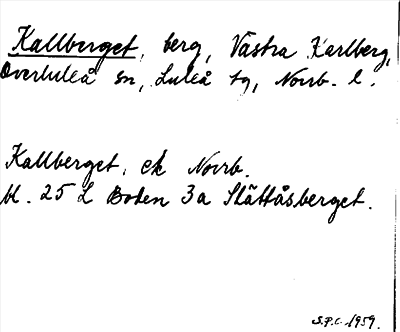 Kallberget, berg, Västra Karlberg,
Överluleå sn, Luleå tg, Norrb. l.
Kallberget, ek Norrb.
bl. 25 L Boden 3a Slättåsberget.
S.P.C. 1959.